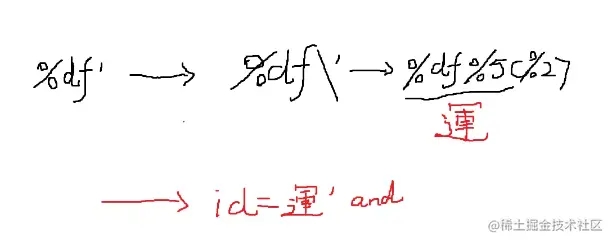 %df' → %df\' → %df%5c%27
運
→ id=運' and
@稀土掘金技术社区